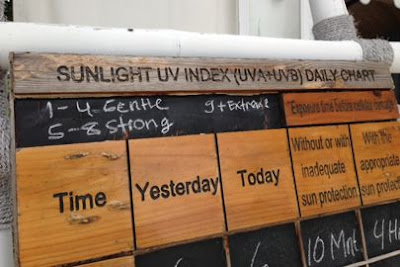 SUNLIGHT UV INDEX (UVA+UVB) DAILY CHART
1-4 Gentle 9+ Extreme
5-8 Strong
Exposure time before cellular damage
Time
Yesterday
Today
Without or with
inadequate
sun protection
With the
appropriate
sun protect
6
10 Mnt
4 H